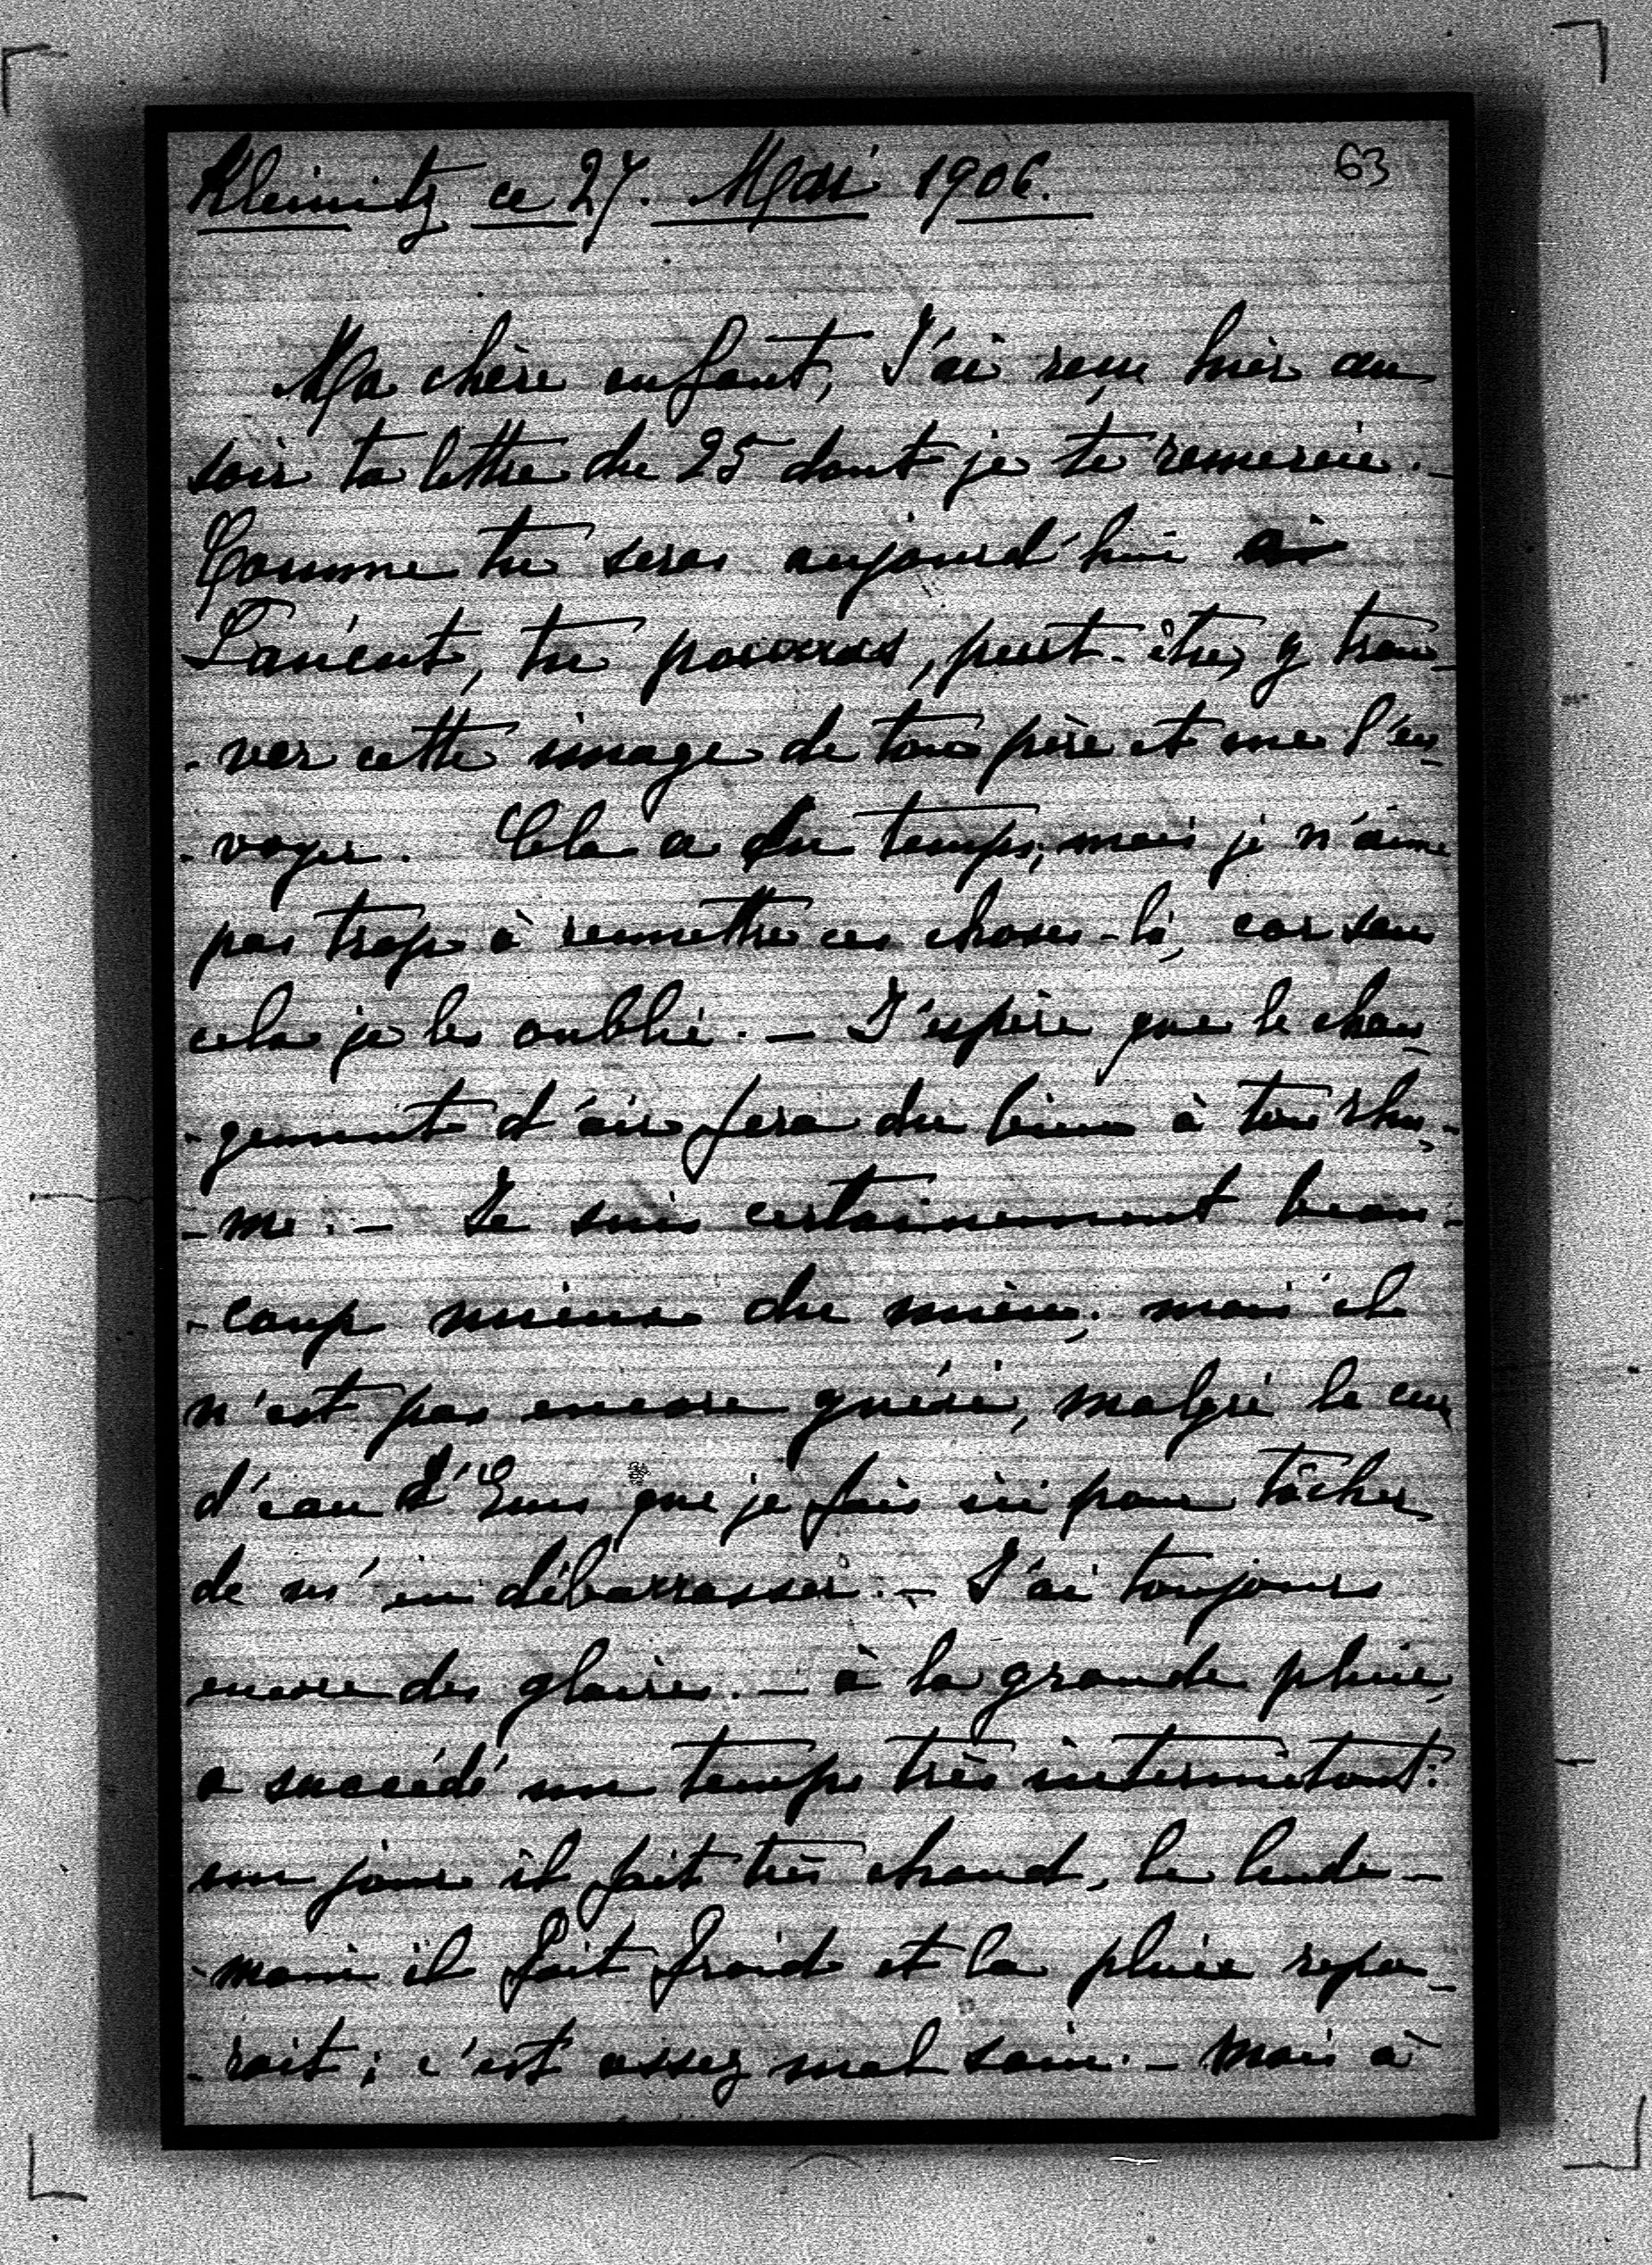 63
Kleinitz ce 27. Mai 1906.
Ma chère enfant, J'ai reçu hier au
soir ta lettre du 25 dont je te remercie. -
Comme tu seras aujourd'hui à
Lanèut, tu pourras, peut-être, y trou-
-ver cette image de ton père et me l'en-
-voyer. Cela a du temps, mais je n'aime
pas trop à remettre ces choses-là, car sans
cela je les oublie. - J'espère que le chan-
-gement d'air fera du bien à ton rhu-
-me. - Je suis certainement beau-
-coup mieux du mien; mais il
n'est pas encore guéri, malgré la cure
d'eau d'Ems que je fais ici pour tâcher
de m'en débarrasser. - J'ai toujours
encore des glaires. - à la grande pluie,
a succédé un temps très intermitant:
un jour il fait très chaud, le lende-
-main il fait froid et la pluie repa-
-rait; c'est assez mal sain. - Mais à